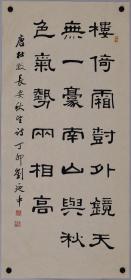 樓倚霜樹外鏡天
無一豪南山與秋
色氣勢兩相高
唐杜牧長安秋望詩丁卯劉迺中